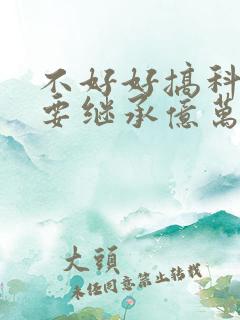 不好好搞科
要继承億萬
大頭
未经同意禁止转载